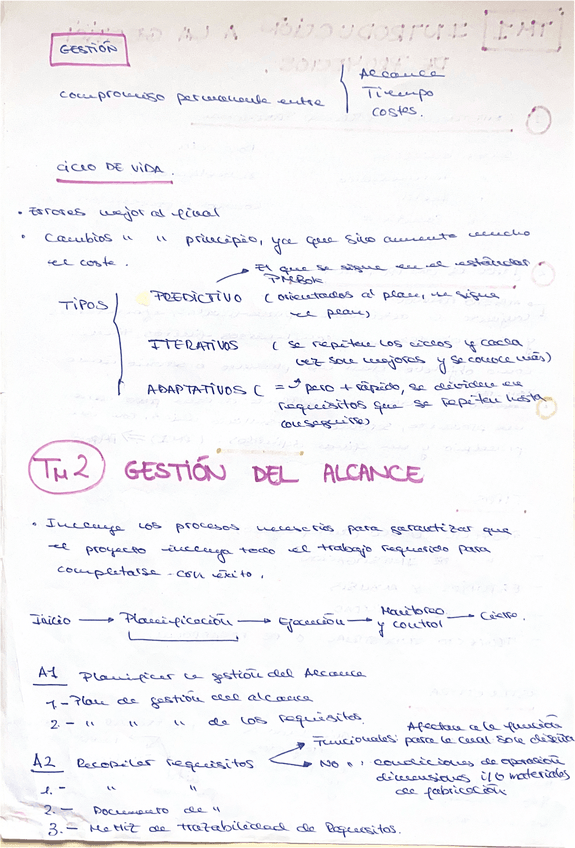 GESTIÓN
compromiso permanente entre
Alcance
Tiempo
costes.
CICLO DE VIDA.
• Errores mejor al final
• Cambios " " principio, ya que sino aumenta mucho
el coste.
El que se sigue en el estándar
PMBok
TIPOS
PREDICTIVO (orientados al plan, se sigue
el plan)
ITERATIVOS (se repiten los ciclos y cada
vez son mejores y se conoce más)
ADAPTATIVOS (= pero + rápido, se dividen en
requisitos que se repiten hasta
conseguirse)
TM2 GESTIÓN DEL ALCANCE
• Incluye los procesos necesarios para garantizar que
el proyecto incluya todo el trabajo requerido para
completarse con éxito.
Inicio → Planificación → Ejecución → Monitoreo y control → Cierre.
A1 Planificar la gestión del Alcance
1.- Plan de gestión del alcance
2.- " " " de los requisitos.
Afectan a la función
Funcionales: para la cual son diseña
A2 Recopilar requisitos
No " : condiciones de operación
dimensiones y/o materiales
de fabricación
1.- " "
2.- Documento de "
3.- Matriz de trazabilidad de Requisitos.